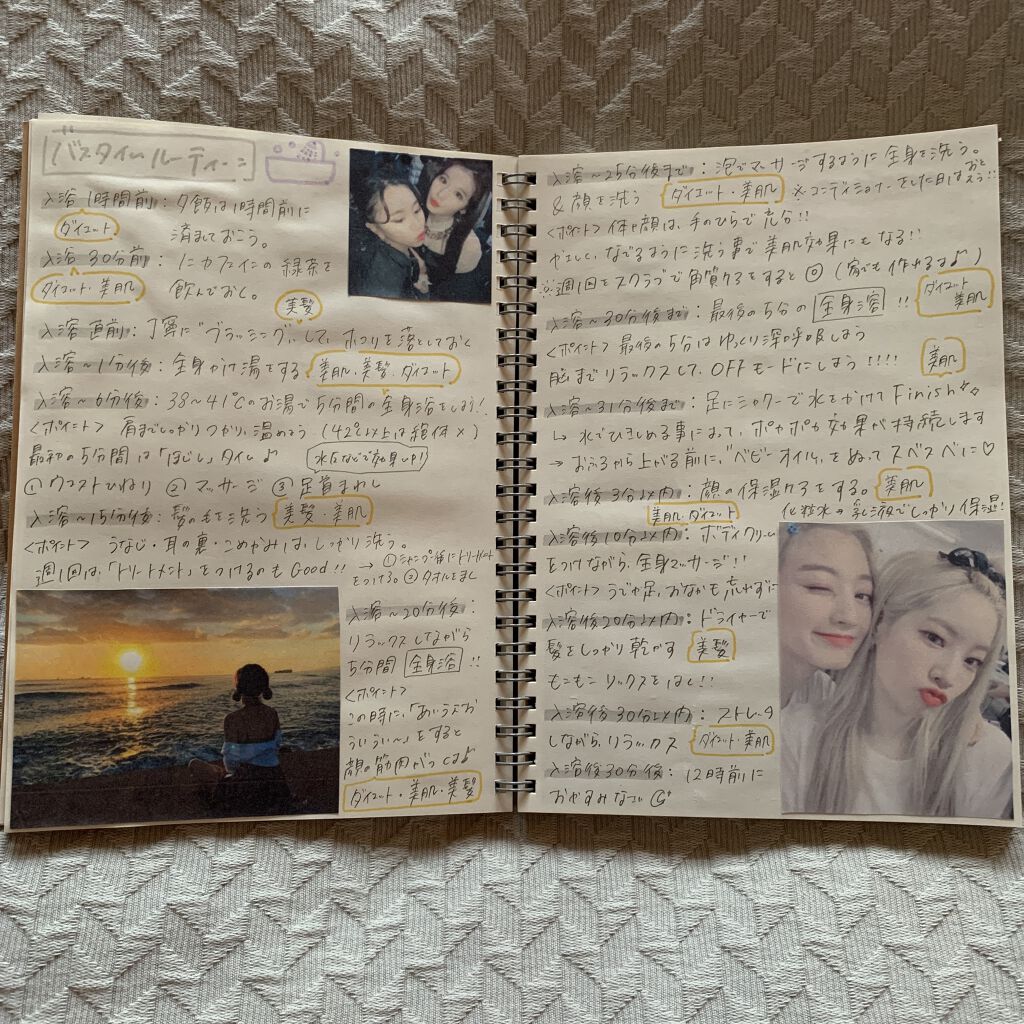 バスタイムルーティーン
入浴1時間前：夕飯は1時間前に
ダイエット
済ませておこう。
入浴30分前：ノンカフェインの緑茶を
ダイエット・美肌
飲んでおく。
美髪
入浴直前：丁寧に"ブラッシング"して、ホコリを落としておく
入浴〜1分後：全身かけ湯をする 美肌・美髪・ダイエット
入浴〜6分後：38〜41℃のお湯で5分間の全身浴をしよう!
<ポイント> 肩までしっかりつかり、温めよう (42℃以上は絶体×)
最初の5分間は「ほぐし」タイム♪ 水圧などで効果UP!
①ウエストひねり ②マッサージ ③足首まわし
入浴〜15分後：髪の毛を洗う 美髪・美肌
<ポイント> うなじ・耳の裏・こめかみは、しっかり洗う。
週1回は、「トリートメント」をつけるのもGood!! → ①シャンプー後にトリートメント
をつける。②タオルをまく
入浴〜20分後：
リラックスしながら
5分間 全身浴 !!
<ポイント>
この時に、「あいうえお
ういうい〜」をすると
顔の筋肉がつくよ♪
ダイエット・美肌・美髪
入浴〜25分後まで：泡でマッサージするように全身を洗う。
&顔を洗う ダイエット・美肌 ※コンディショナーをした日はおとそう!!
<ポイント> 体や顔は、手のひらで充分!!
やさしく、なでるように洗う事で美肌効果にもなる!!
※週1回をスクラブで角質ケアをすると◎(家でも作れるよ♪)
ダイエット
美肌
入浴〜30分後まで：最後の5分の 全身浴 !!
<ポイント> 最後の5分はゆっくり深呼吸しよう
脳までリラックスして、OFFモードにしよう!!!! 美肌
入浴〜31分後まで：足にシャワーで水をかけてFinish☆
↳ 水でひきしめる事によって、ポカポカ効果が持続します
→ おふろから上がる前に、"ベビーオイル"をぬってスベスベに♡
入浴後3分以内：顔の保湿ケアをする。 美肌
美肌・ダイエット 化粧水や乳液でしっかり保湿!
入浴後10分以内：ボディクリーム
をつけながら、全身マッサージ!
<ポイント> うでや足、おなかも忘れずに
入浴後20分以内：ドライヤーで
髪をしっかり乾かす 美髪
もこもこソックスをはく!!
入浴後30分以内：ストレッチ
しながら、リラックス ダイエット・美肌
入浴後30分後：12時前に
おやすみなさい